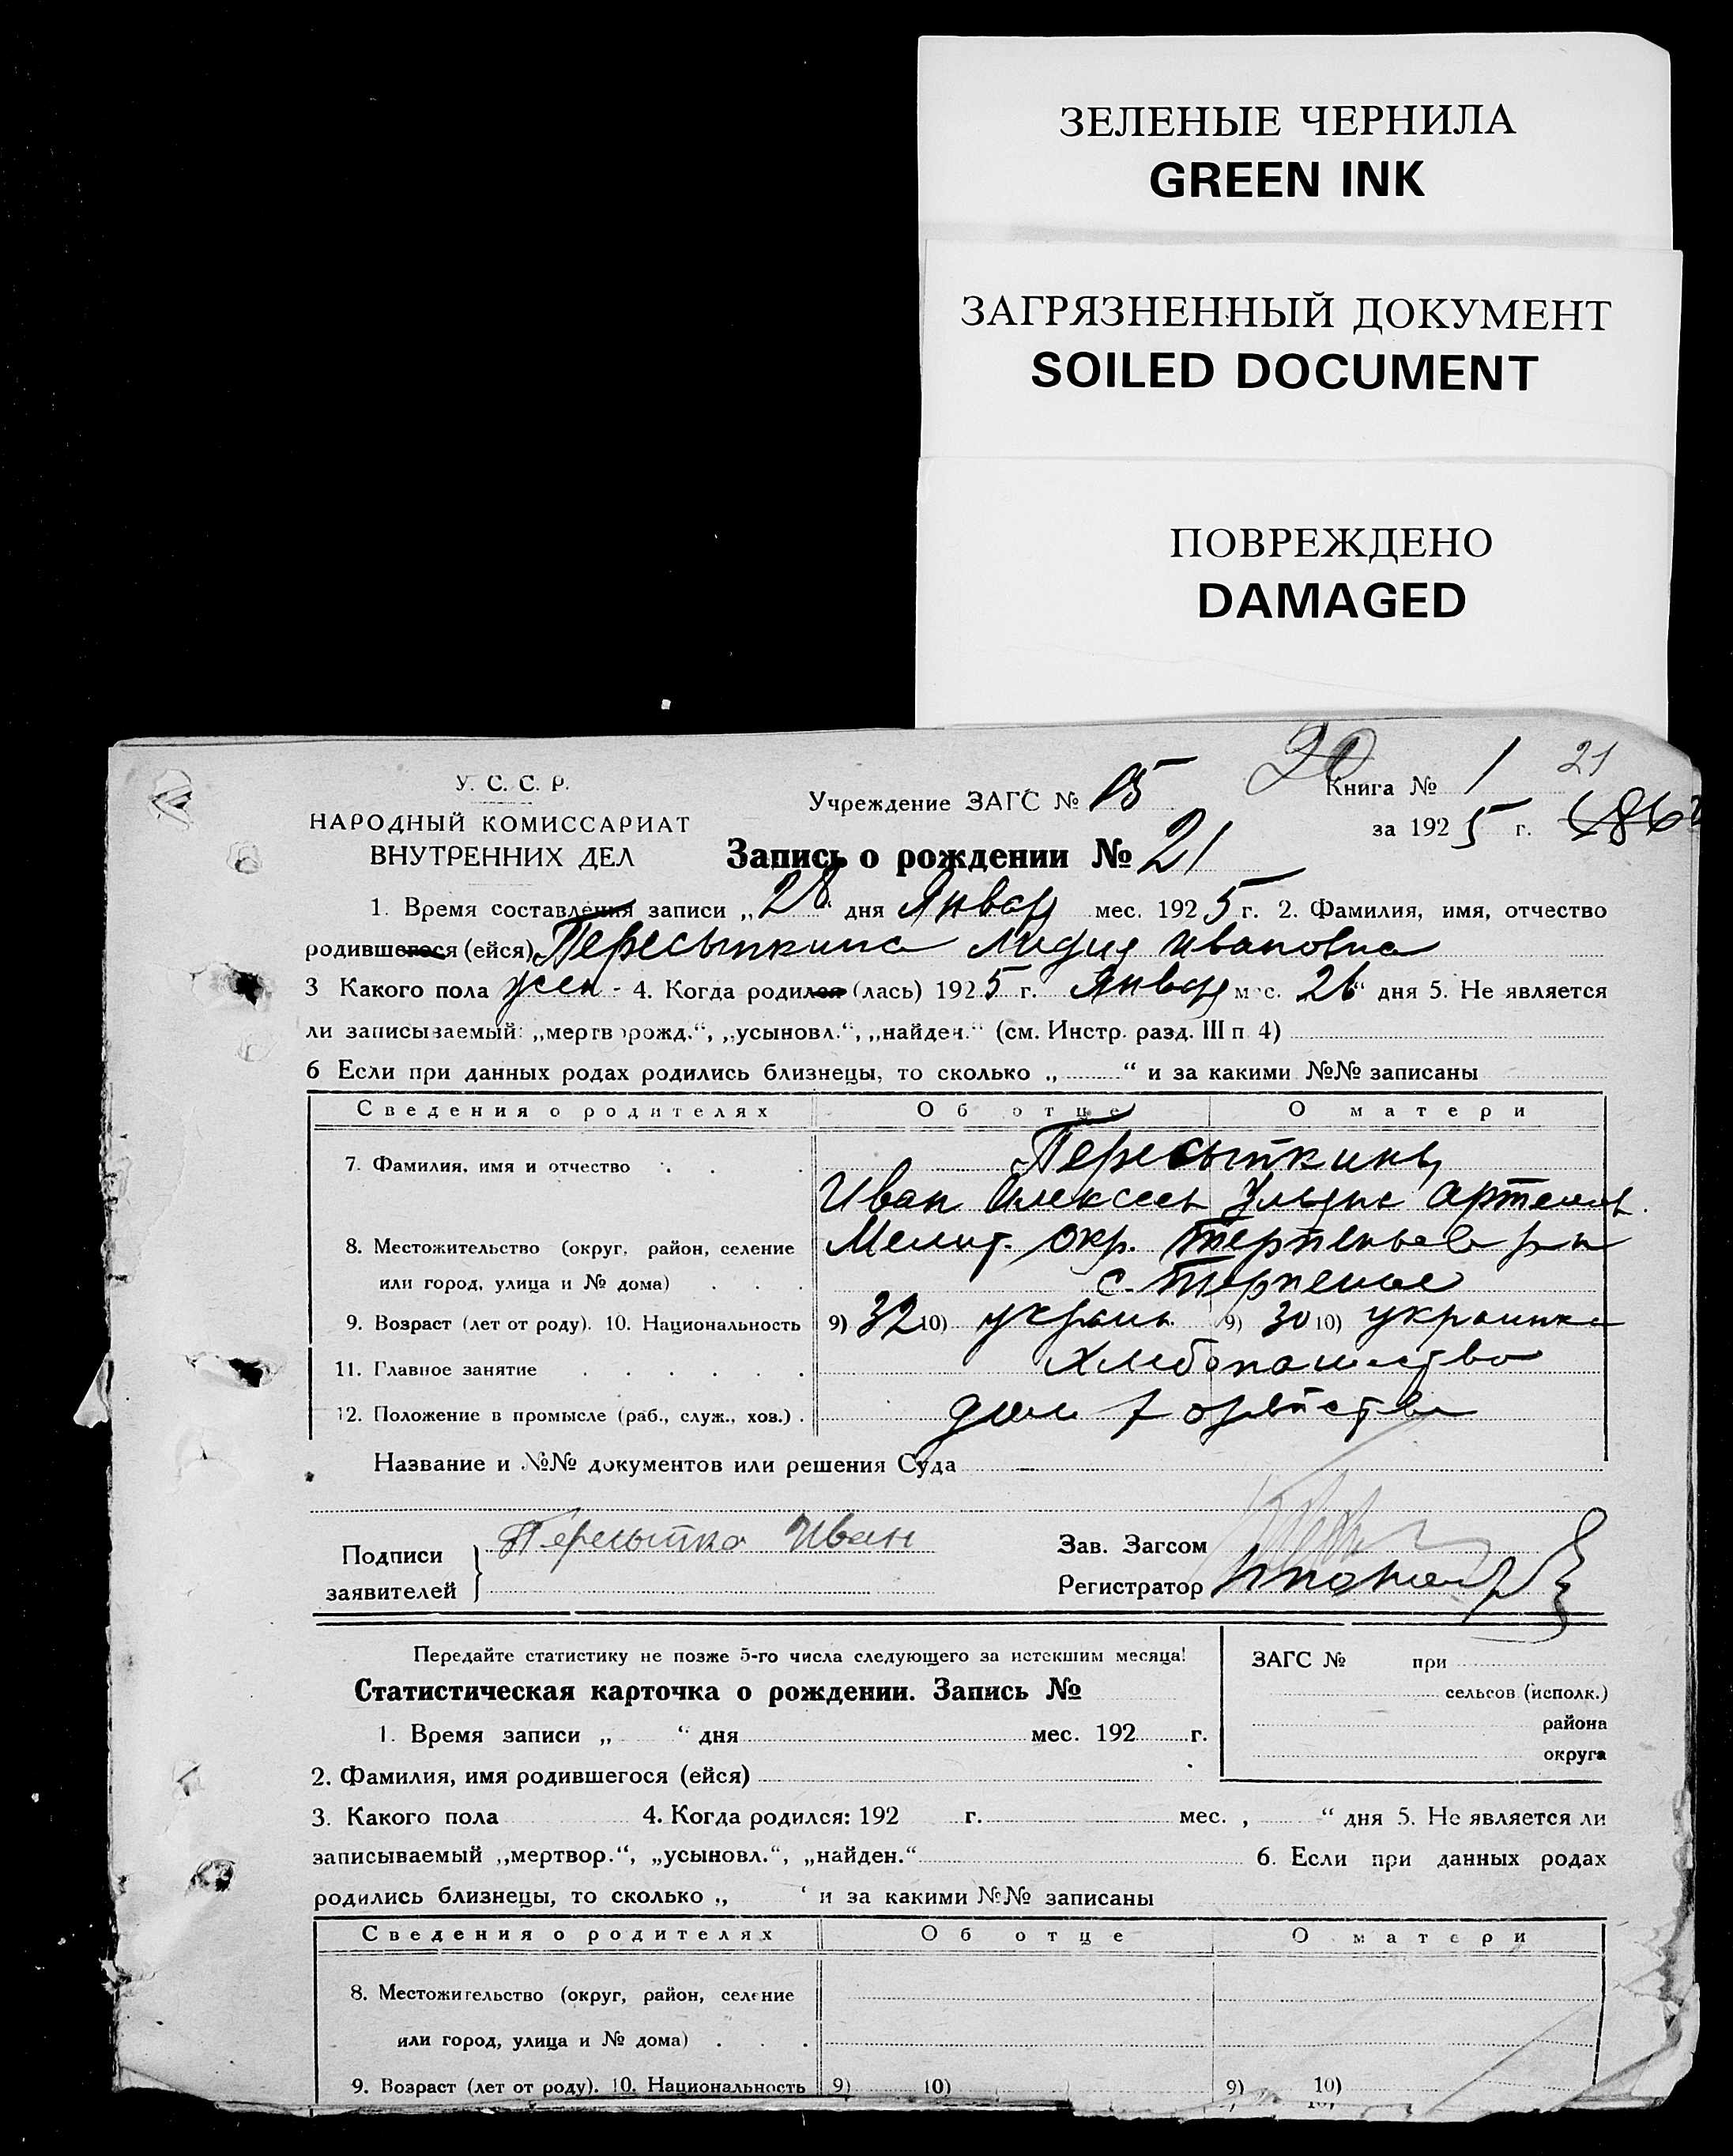 ЗЕЛЕНЫЕ ЧЕРНИЛА
GREEN INK
ЗАГРЯЗНЕННЫЙ ДОКУМЕНТ
SOILED DOCUMENT
ПОВРЕЖДЕНО
DAMAGED
20 21
У. С. С. Р.
НАРОДНЫЙ КОМИССАРИАТ
ВНУТРЕННИХ ДЕЛ
Учреждение ЗАГС № 15
Книга № 1
за 1925 г.
Запись о рождении № 21
1. Время составления записи „28“ дня Январ мес. 1925 г. 2. Фамилия, имя, отчество
родившегося (ейся) Пересыпкина Лидия Ивановна
3 Какого пола жен - 4. Когда родился (лась) 1925 г. Январ мес. 26“ дня 5. Не является
ли записываемый: „мертворожд.“, „усыновл.“, „найден.“ (см. Инстр. разд. III п 4)
6 Если при данных родах родились близнецы, то сколько „ “ и за какими №№ записаны
Сведения о родителях Об отце О матери
7. Фамилия, имя и отчество Пересыпкины
Иван Алексеев Ульяна Артемов.
8. Местожительство (округ, район, селение Мелит. окр. Терпеньев р-н
или город, улица и № дома) с. Терпенье
9. Возраст (лет от роду). 10. Национальность 9) 32 10) украин. 9) 30 10) украинка
11. Главное занятие Хлебопашество
12. Положение в промысле (раб., служ., хоз.)
Название и №№ документов или решения Суда
Подписи
заявителей
Пересыпко Иван
Зав. Загсом
Регистратор
Передайте статистику не позже 5-го числа следующего за истекшим месяца!
Статистическая карточка о рождении. Запись №
ЗАГС № при
сельсов (исполк.)
района
округа
1. Время записи „ “ дня мес. 192 г.
2. Фамилия, имя родившегося (ейся)
3. Какого пола 4. Когда родился: 192 г. мес. , “ дня 5. Не является ли
записываемый „мертвор.“, „усыновл.“, „найден.“ 6. Если при данных родах
родились близнецы, то сколько „ ‘ и за какими №№ записаны
Сведения о родителях Об отце О матери
8. Местожительство (округ, район, селение
или город, улица и № дома)
9. Возраст (лет от роду). 10. Национальность 9) 10) 9) 10)